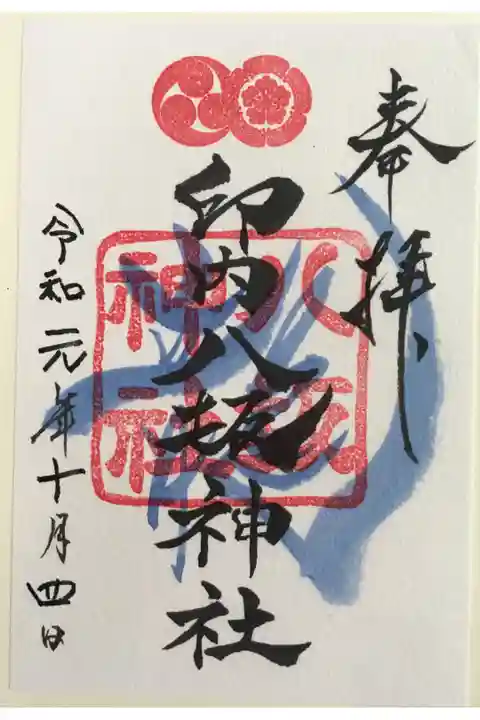 奉拝
印内八坂神社
八坂
神社
令和元年十月四日